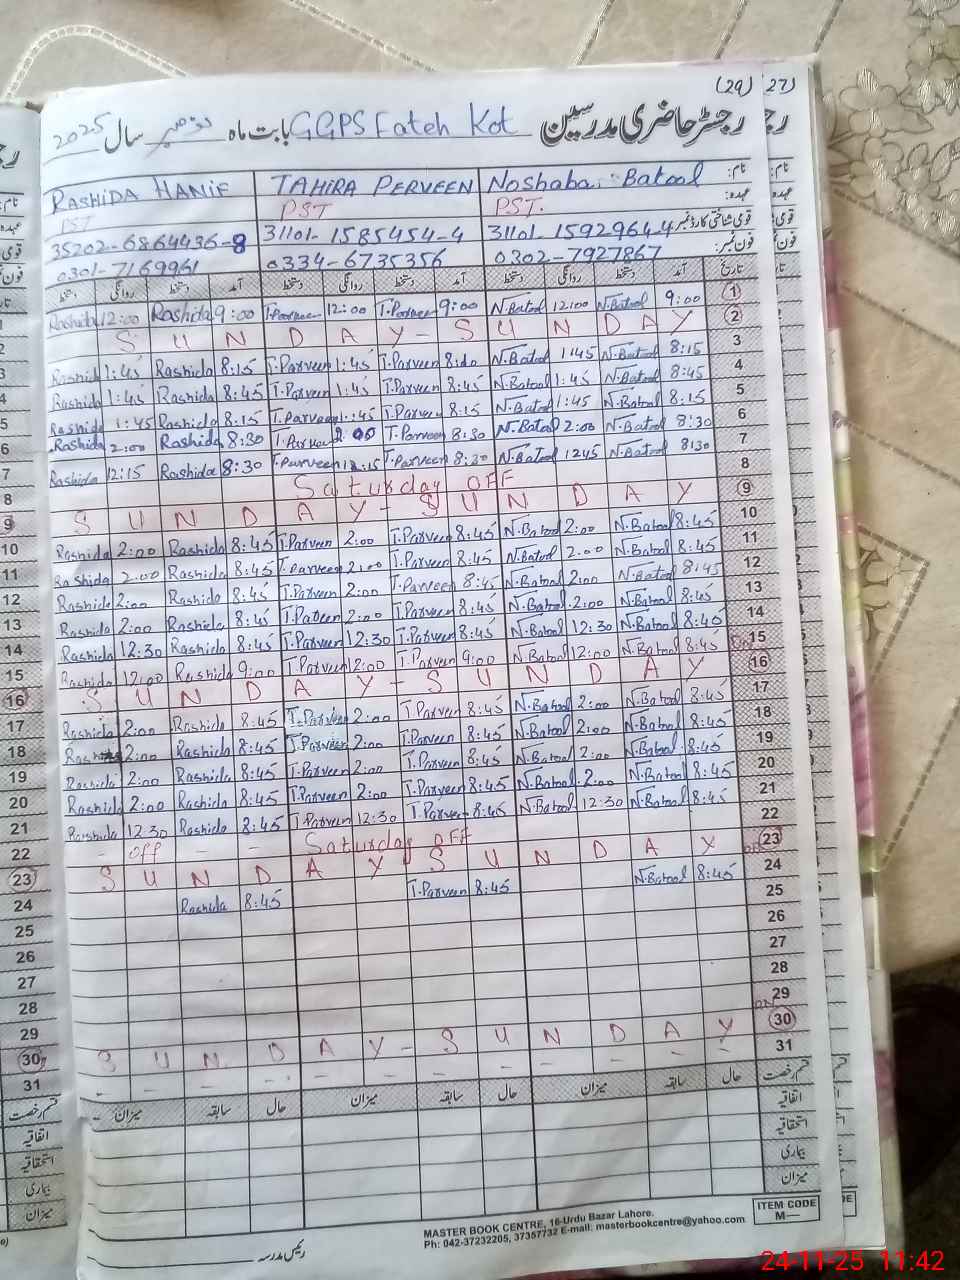 (29) 27)
رجسٹر حاضری مدرسین بابت ماہ GGPS Fateh Kot نومبر سال 2025
نام: Noshaba Batool TAHIRA PERVEEN RASHIDA HANIF
عہدہ: PST. PST PST
قومی شناختی کارڈ نمبر 31101-1592964-4 31101-1585454-4 35202-6864436-8
فون نمبر: 0302-7927867 0334-6735356 0301-7169961
تاریخ آمد دستخط روانگی دستخط آمد دستخط روانگی دستخط آمد دستخط روانگی دستخط
Rashida 12:00 Rashida 9:00 T.Parveen 12:00 T.Parveen 9:00 N.Batool 12:00 N.Batool 9:00 1
S U N D A Y - S U N D A Y 2
Rashida 1:45 Rashida 8:15 T.Parveen 1:45 T.Parveen N.Batool 1:45 N.Batool 8:15 3
Rashida 1:45 Rashida 8:45 T.Parveen 1:45 T.Parveen 8:45 N.Batool 1:45 N.Batool 8:45 4
Rashida 1:45 Rashida 8:15 T.Parveen 1:45 T.Parveen 8:15 N.Batool 1:45 N.Batool 8:15 5
Rashida 2:00 Rashida 8:30 T.Parveen T.Parveen 8:30 N.Batool 2:00 N.Batool 8:30 6
Rashida 12:15 Rashida 8:30 T.Parveen 12:15 T.Parveen 8:30 N.Batool 1245 N.Batool 8:30 7
Saturday OFF 8
S U N D A Y - S U N D A Y 9
Rashida 2:00 Rashida 8:45 T.Parveen 2:00 T.Parveen 8:45 N.Batool 2:00 N.Batool 8:45 10
Rashida 2:00 Rashida 8:45 T.Parveen 2:00 T.Parveen 8:45 N.Batool 2:00 N.Batool 8:45 11
Rashida 2:00 Rashida 8:45 T.Parveen 2:00 T.Parveen 8:45 N.Batool 2:00 N.Batool 8:45 12
Rashida 2:00 Rashida 8:45 T.Parveen 2:00 T.Parveen 8:45 N.Batool 2:00 N.Batool 8:45 13
Rashida 12:30 Rashida 8:45 T.Parveen 12:30 T.Parveen 8:45 N.Batool 12:30 N.Batool 8:45 14
Rashida 12:00 Rashida 9:00 T.Parveen 12:00 T.Parveen 9:00 N.Batool 12:00 N.Batool 8:45 15
S U N D A Y - S U N D A Y 16
Rashida 2:00 Rashida 8:45 T.Parveen 2:00 T.Parveen 8:45 N.Batool 2:00 N.Batool 8:45 17
2:00 Rashida 8:45 T.Parveen 2:00 T.Parveen 8:45 N.Batool 2:00 N.Batool 8:45 18
Rashida 2:00 Rashida 8:45 T.Parveen 2:00 T.Parveen 8:45 N.Batool 2:00 N.Batool 8:45 19
Rashida 2:00 Rashida 8:45 T.Parveen 2:00 T.Parveen 8:45 N.Batool 2:00 N.Batool 8:45 20
Rashida 12:30 Rashida 8:45 T.Parveen 12:30 T.Parveen 8:45 N.Batool 12:30 N.Batool 8:45 21
- off - - Saturday OFF 22
S U N D A Y S U N D A Y 23
Rashida 8:45 T.Parveen 8:45 N.Batool 8:45 24
25
26
27
28
29
S U N D A Y - S U N D A Y 30
31
قسم رخصت حال سابقہ میزان حال سابقہ میزان حال سابقہ میزان
اتفاقیہ
استحقاقیہ
بیماری
میزان
رئیس مدرسہ
MASTER BOOK CENTRE, 16-Urdu Bazar Lahore.
Ph: 042-37232205, 37357732 E-mail: masterbookcentre@yahoo.com
ITEM CODE
M—
24-11-25 11:42